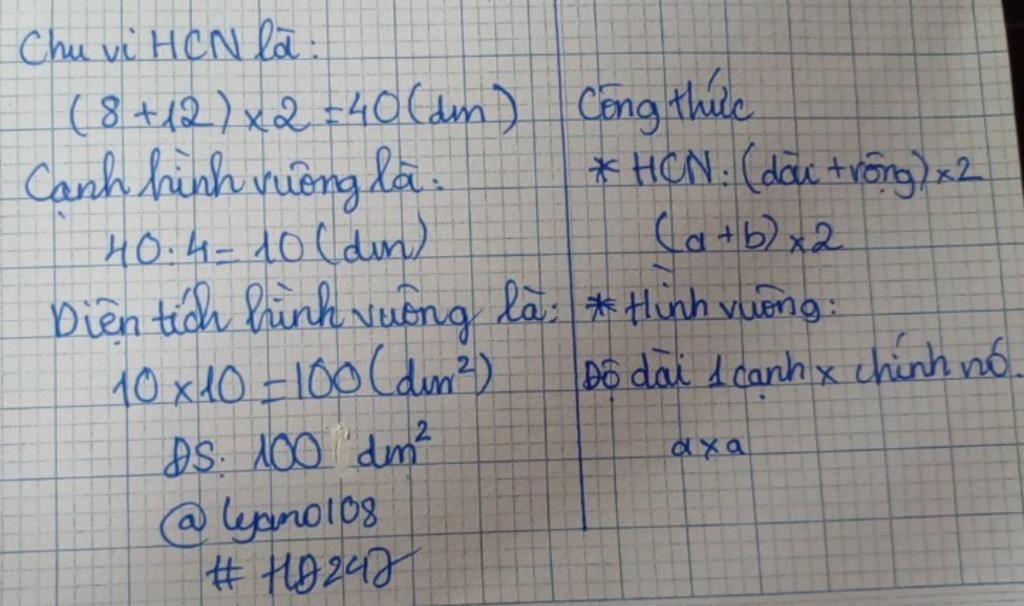 Chu vi HCN là:
(8+12)×2=40(dm)
Cạnh hình vuông là:
40:4=10(dm)
Diện tích hình vuông là:
10×10=100(dm²)
ĐS: 100 dm²
@lyan0108
# HĐ247
Công thức
* HCN: (dài+rộng)×2
(a+b)×2
* Hình vuông:
Độ dài 1 cạnh × chính nó.
a×a